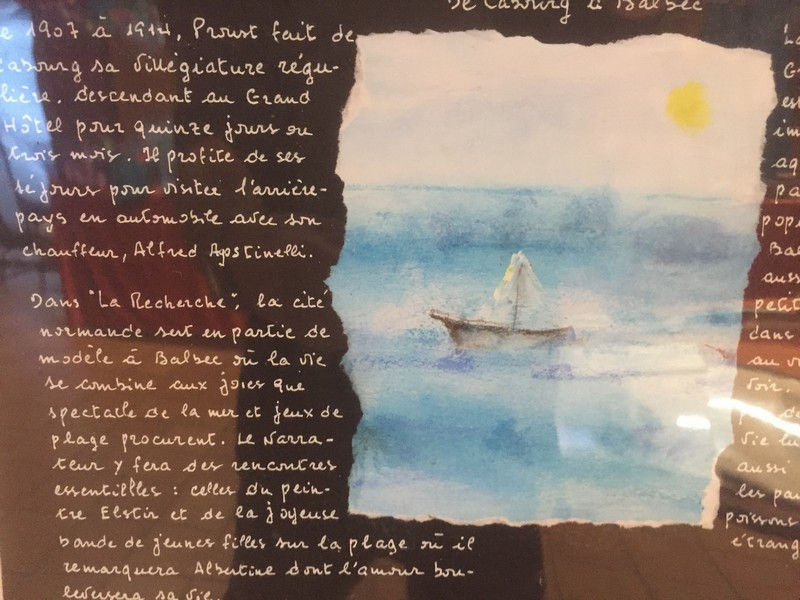 De Cabourg à Balbec
e 1907 à 1914, Proust fait de
Cabourg sa villégiature régu-
lière, descendant au Grand
Hôtel pour quinze jours ou
trois mois. Il profite de ses
séjours pour visiter l'arrière-
pays en automobile avec son
chauffeur, Alfred Agostinelli.
Dans "La Recherche", la cité
normande sert en partie de
modèle à Balbec où la vie
se combine aux joies que
spectacle de la mer et jeux de
plage procurent. Le Narra-
teur y fera des rencontres
essentielles : celles du pein-
tre Elstir et de la joyeuse
bande de jeunes filles sur la plage où il
remarquera Albertine dont l'amour bou-
leversera sa vie.
La
G
est
im
ag
pa
pop
Bal
auss
petit
dans
au v
voir.
de
vie lu
aussi
les pa
poissons
étrang